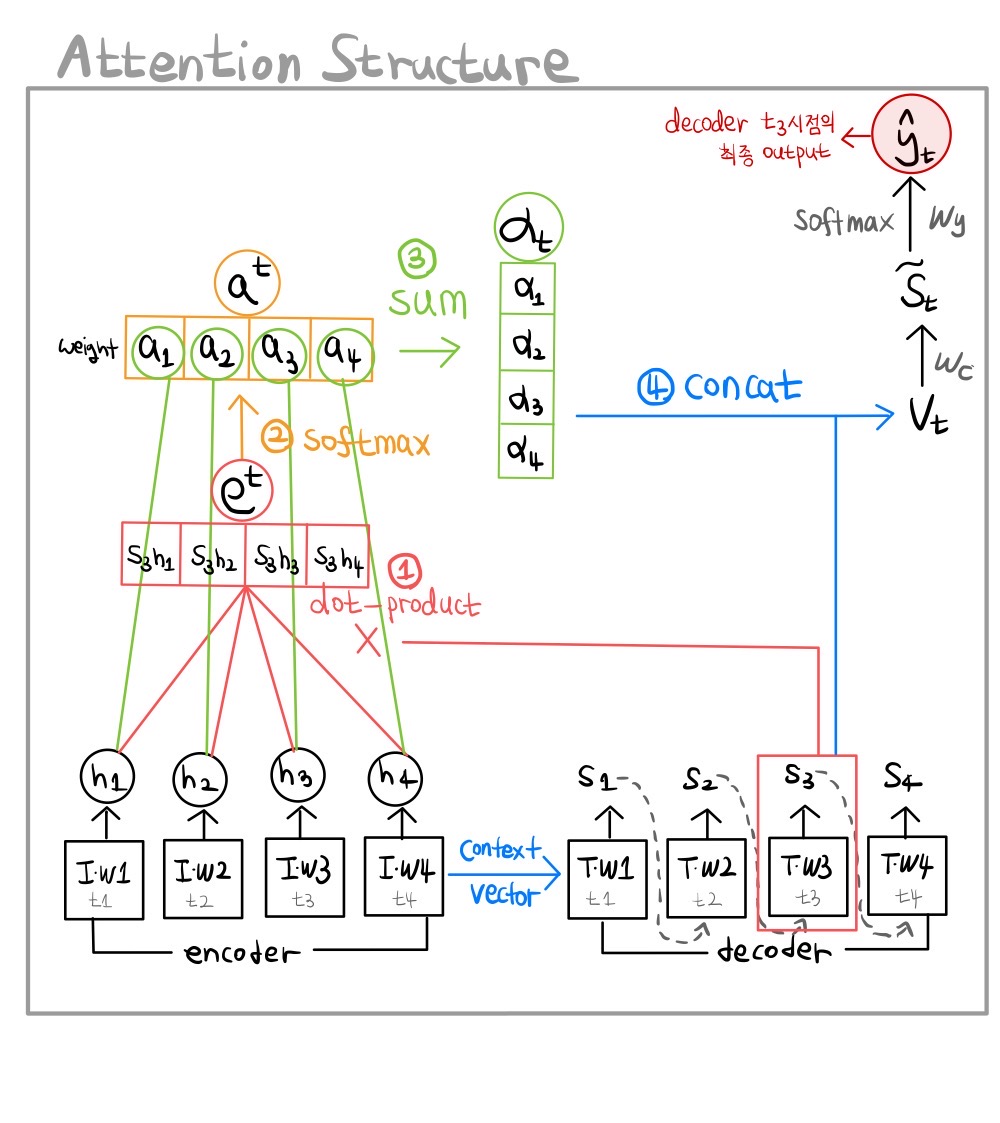 Attention Structure
decoder t₃시점의
최종 output
ŷₜ
softmax
Wy
S̃ₜ
Wc
Vₜ
④ concat
αₜ
α₁
α₂
α₃
α₄
③
sum
aᵗ
weight
a₁ a₂ a₃ a₄
② softmax
eᵗ
S₃h₁ S₃h₂ S₃h₃ S₃h₄
①
dot-product
X
h₁ h₂ h₃ h₄
S₁ S₂ S₃ S₄
I·W1 I·W2 I·W3 I·W4
t1 t2 t3 t4
context
vector
T·W1 T·W2 T·W3 T·W4
t1 t2 t3 t4
encoder
decoder